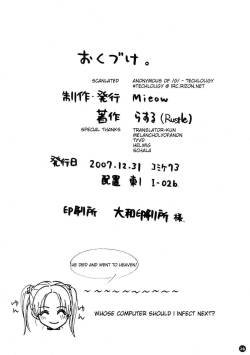 おくづけ。
SCANLATED ANONYMOUS OF /D/ - TECHLOLIGY
#TECHLOLIGY @ IRC.RIZON.NET
制作・発行 Mieow
著作 らする (Rustle)
SPECIAL THANKS TRANSLATOR-KUN
MELANCHOLYOFANON
TYVD
HELMIG
SCHALA
発行日 2007.12.31 コミケ73
配置 東1 I-02b
印刷所 大和印刷所 様
WE DIED AND WENT TO HEAVEN!
WHOSE COMPUTER SHOULD I INFECT NEXT?